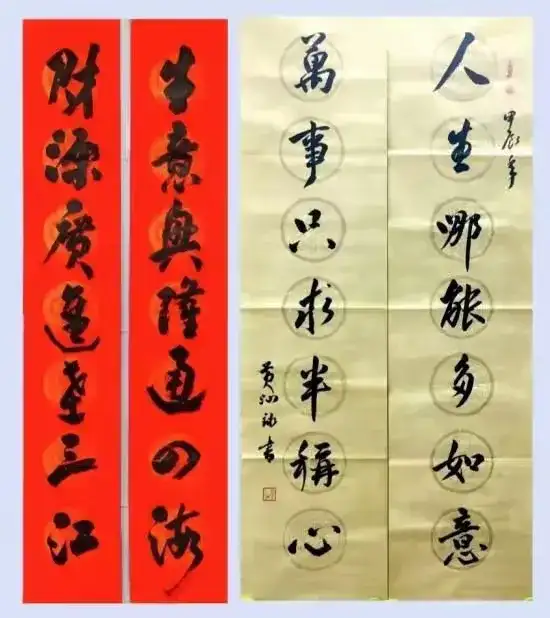 甲辰年
人生哪能多如意
萬事只求半稱心
生意興隆通四海
財源廣進達三江